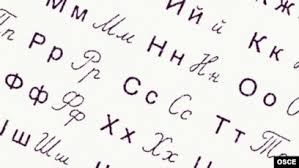 Йй й Кк
Мм Мм Нн Нн Оо
Пп Рр Рр Сс Сс Тт Тт
Фф Фф Хх Хх
ш Шш
OSCE